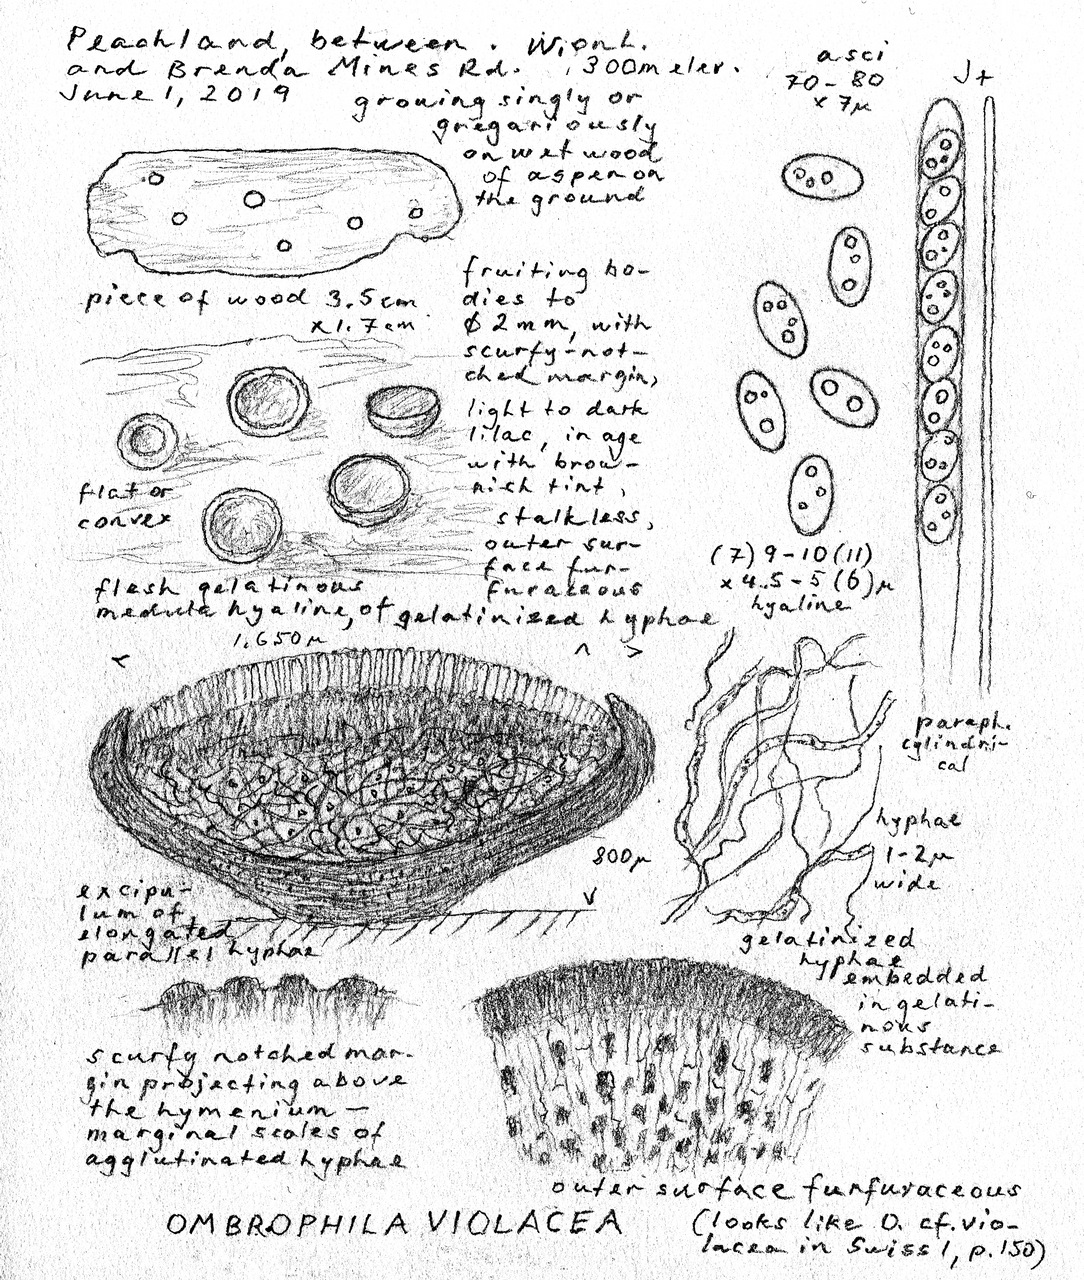 Peachland, between . Wionl.
and Brenda Mines Rd. , 1300m elev.
June 1, 2019
growing singly or
gregariously
on wet wood
of aspen on
the ground
piece of wood 3.5cm
x 1.7cm
fruiting bo-
dies to
ϕ 2mm, with
scurfy-not-
ched margin,
light to dark
lilac, in age
with brow-
nish tint,
stalkless,
outer sur-
face fur-
furaceous
flat or
convex
flesh gelatinous
medula hyaline, of gelatinized hyphae
asci
70-80
x 7µ
J+
(7) 9-10 (11)
x 4.5-5 (6)µ
hyaline
paraph.
cylindri-
cal
1,650µ
800µ
excipu-
lum of
elongated
parallel hyphae
hyphae
1-2µ
wide
gelatinized
hyphae
embedded
in gelati-
nous
substance
scurfy notched mar-
gin projecting above
the hymenium —
marginal scales of
agglutinated hyphae
outer surface furfuraceous
OMBROPHILA VIOLACEA
(looks like O. cf. vio-
lacea in Swiss 1, p. 150)